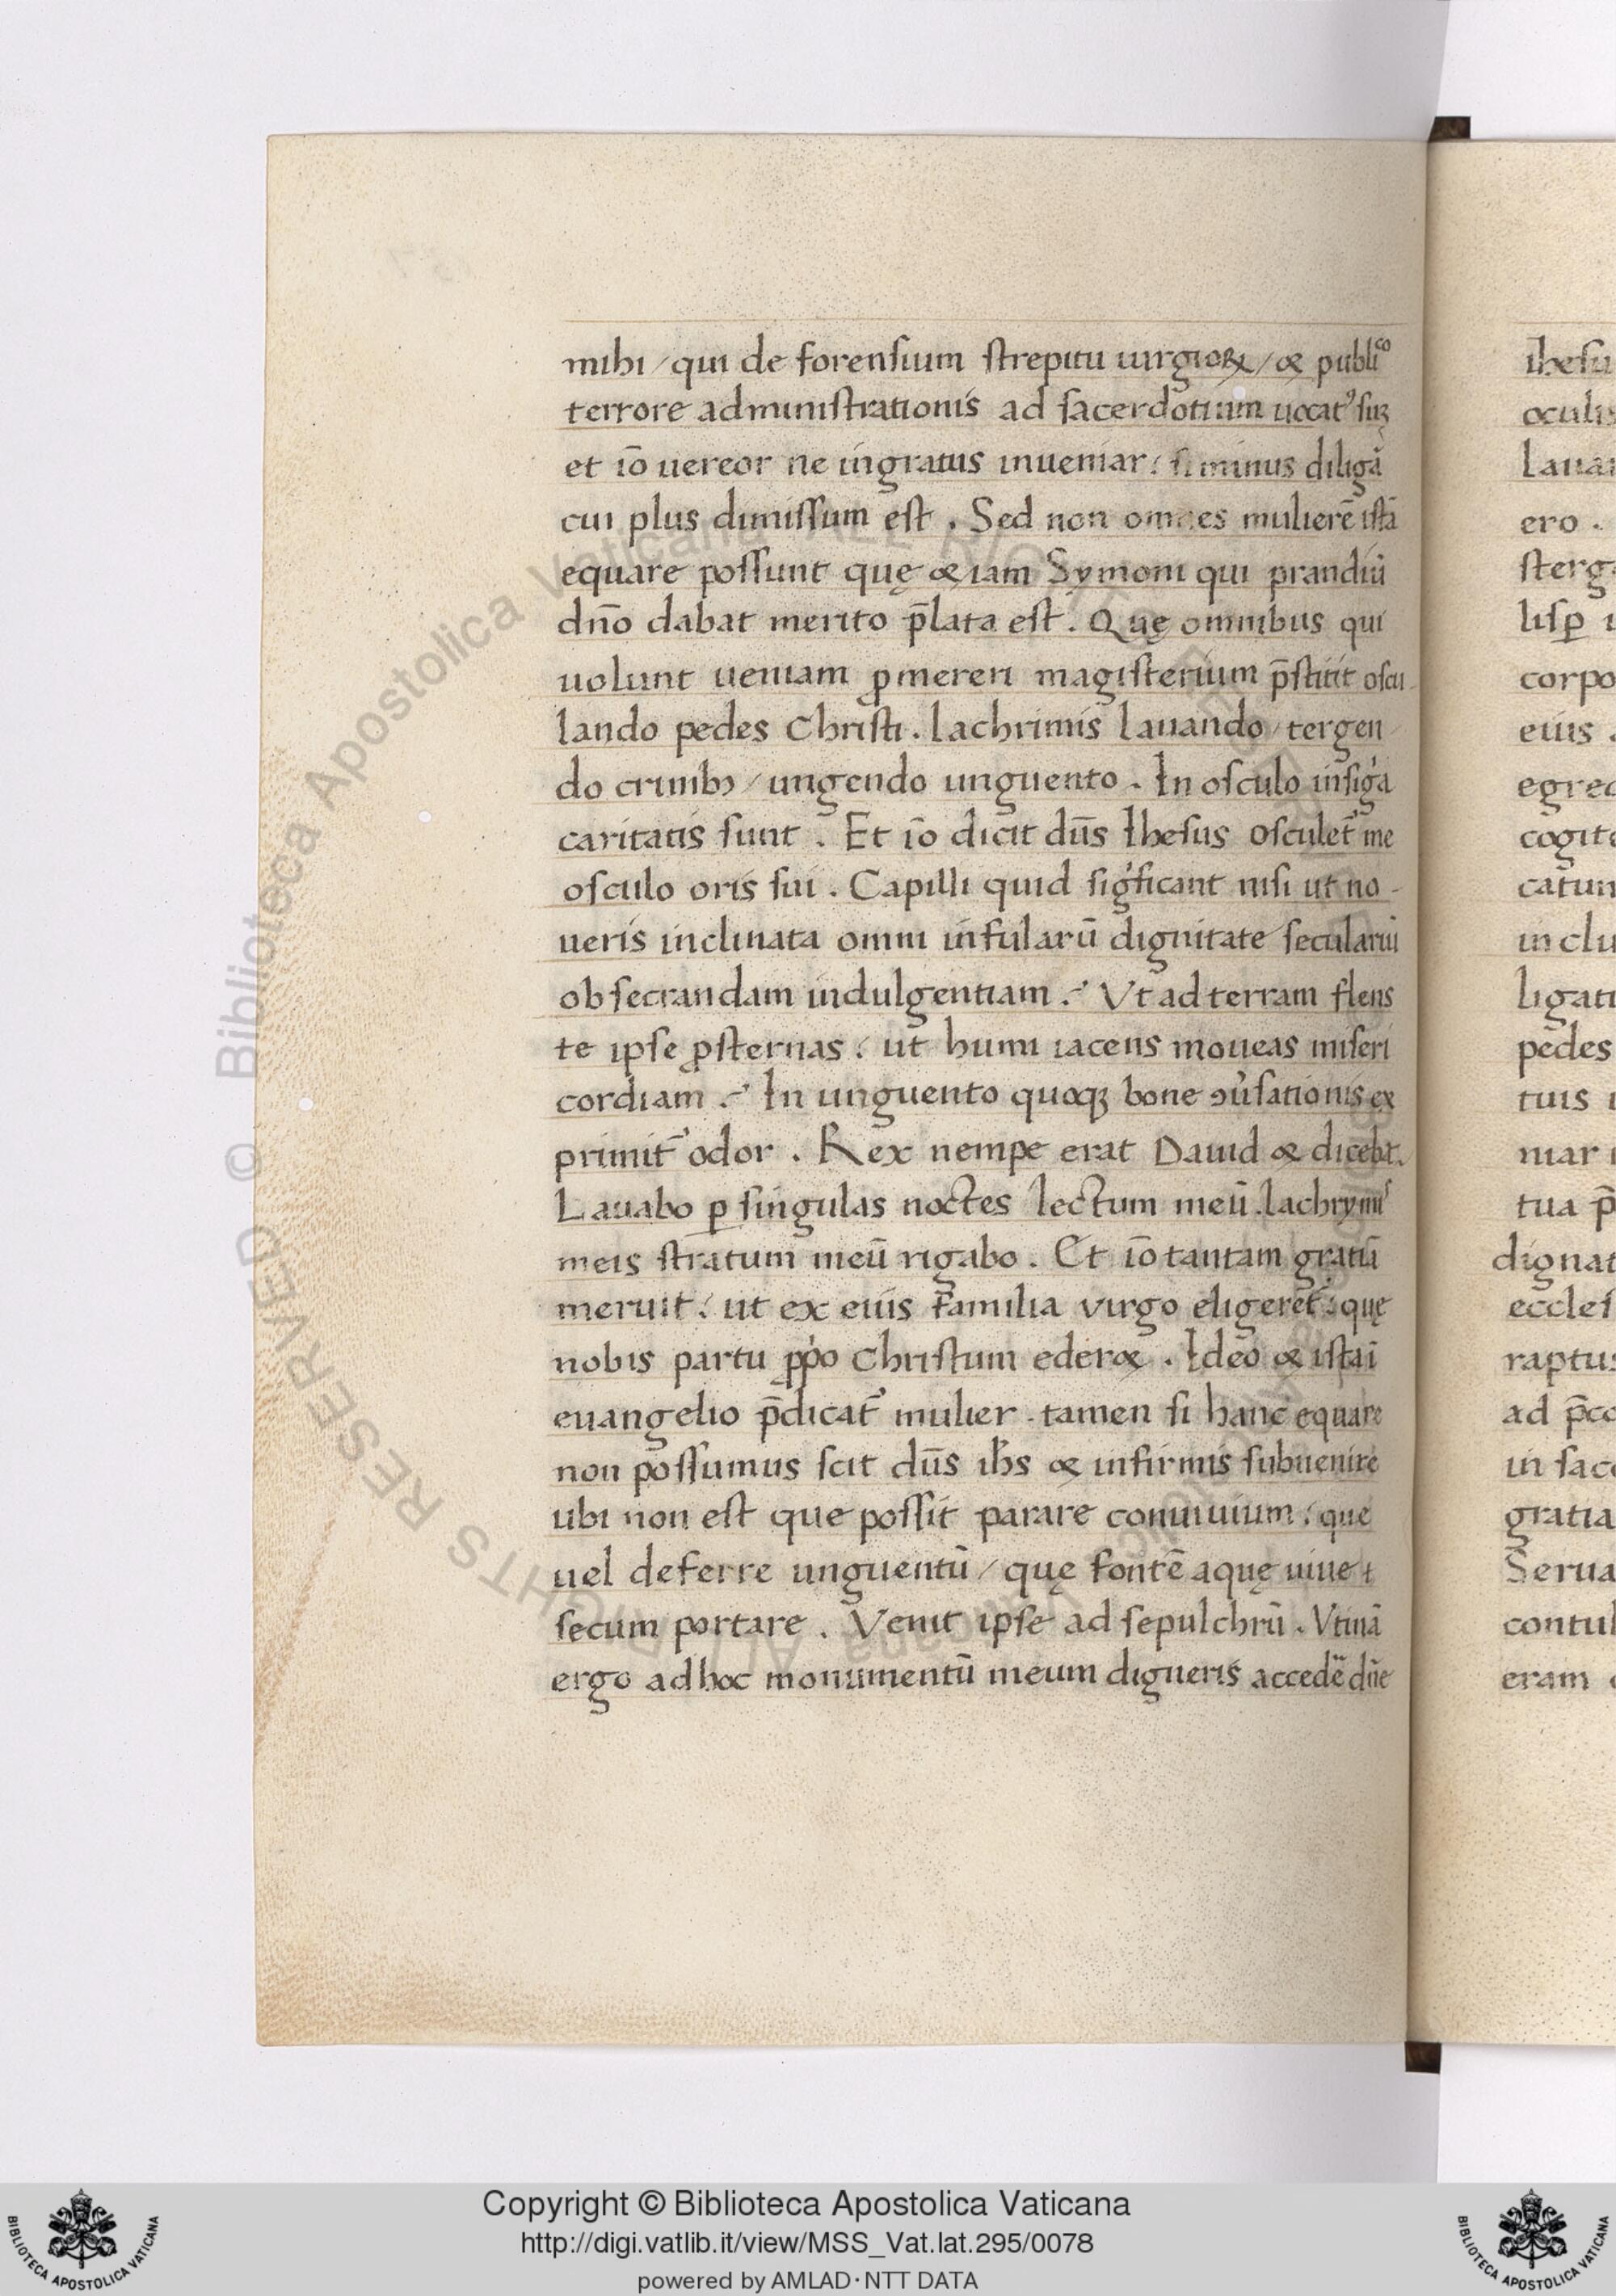 mihi / qui de forensium strepitu uirgioꝝ / & publico
terrore administrationis ad sacerdotium uocatꝰ suꝫ
et iō uereor ne ingratus inueniar : si minus diligā
cui plus dimissum est . Sed non omnes mulierē istā
equare possunt quę & iam Symoni qui prandiū
dn̄o dabat merito p̄lata est . Quę omnibus qui
uolunt ueniam ꝓmereri magisterium p̄stitit oscu-
lando pedes Christi . lachrimis lauando / tergen
do crinibꝫ / ungendo unguento . In osculo insig̃a
caritatis sunt . Et iō dicit dn̄s Ihesus Osculet᷑ me
osculo oris sui . Capilli quid sig̃ficant nisi ut no-
ueris inclinata omni infularū dignitate seculariū
obsecrandam indulgentiam . Vt ad terram flens
te ipse ꝓsternas : ut humi iacens moueas miseri
cordiam . In unguento quoqꝫ bone ꝯu̓sationis ex
primit᷑ odor . Rex nempe erat Dauid & dicebat .
Lauabo ꝑ singulas noctes lectum meū . lachrymis
meis stratum meū rigabo . Et iō tantam gratiā
meruit : ut ex eius familia virgo eligeret᷑ : quę
nobis partu ꝓpo Christum eder& . Ideo & ista ī
euangelio p̄dicat᷑ mulier . tamen si hanc equare
non possumus scit dn̄s ih̄s & infirmis subuenire
ubi non est que possit parare conuiuium : que
uel deferre unguentū / quę fontē aquę uiue
secum portare . Venit ipse ad sepulchrū . Vtinā
ergo ad hoc monumentū meum digneris accedē dn̄e
ihesu
oculis
Lauar
ero .
sterg
lisꝑ
corpo
eius .
egred
cogit
catum
inclu
ligati
pedes
tuis
niar
tua p̄
dignat
eccles
raptus
ad p̄co
in sac
gratia
Serua
contul
eram
© Biblioteca Apostolica Vaticana ALL RIGHTS RESERVED
Copyright © Biblioteca Apostolica Vaticana
http://digi.vatlib.it/view/MSS_Vat.lat.295/0078
powered by AMLAD·NTT DATA
BIBLIOTECA APOSTOLICA VATICANA
BIBLIOTECA APOSTOLICA VATICANA